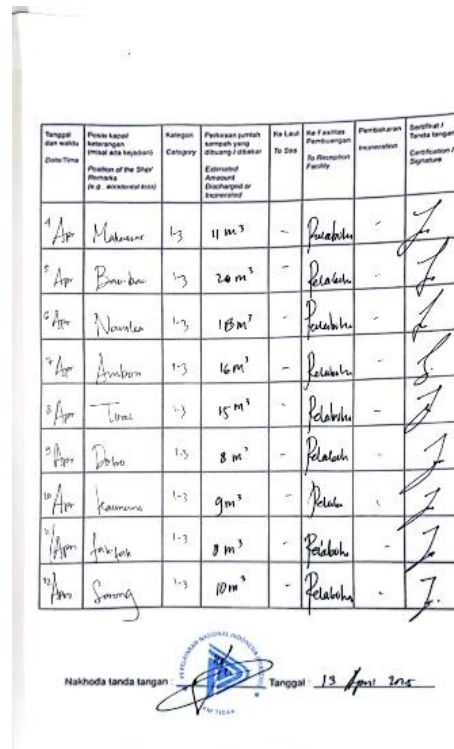 Tanggal dan waktu Date/Time
Posisi kapal/ keterangan (misal ada kejadian) Position of the Ship/ Remarks (e.g. accidental loss)
Kategori Category
Perkiraan jumlah sampah yang dibuang / dibakar Estimated Amount Discharged or Incinerated
Ke Laut To Sea
Ke Fasilitas Pembuangan To Reception Facility
Pembakaran Incineration
Sertifikat / Tanda tangan Certification / Signature
4 Apr Makassar 1-3 11 m³ -
5 Apr Bau-bau 1-3 20 m³ -
6 Apr Namlea 1-3 18 m³ -
7 Apr Ambon 1-3 16 m³ -
8 Apr Tual 1-3 15 m³ - Pelabuhan -
9 Apr Dobo 1-3 8 m³ - Pelabuh
10 Apr Kaimana 1-3 9 m³ -
11 Apr fak-fak 1-3 8 m³ - Pelabuhan -
12 Apr Sorong 1-3 10 m³ - Pelabuhan -
Nakhoda tanda tangan :
PT PELAYARAN NASIONAL INDONESIA
KM TIDAR
Tanggal : 13 April 2025